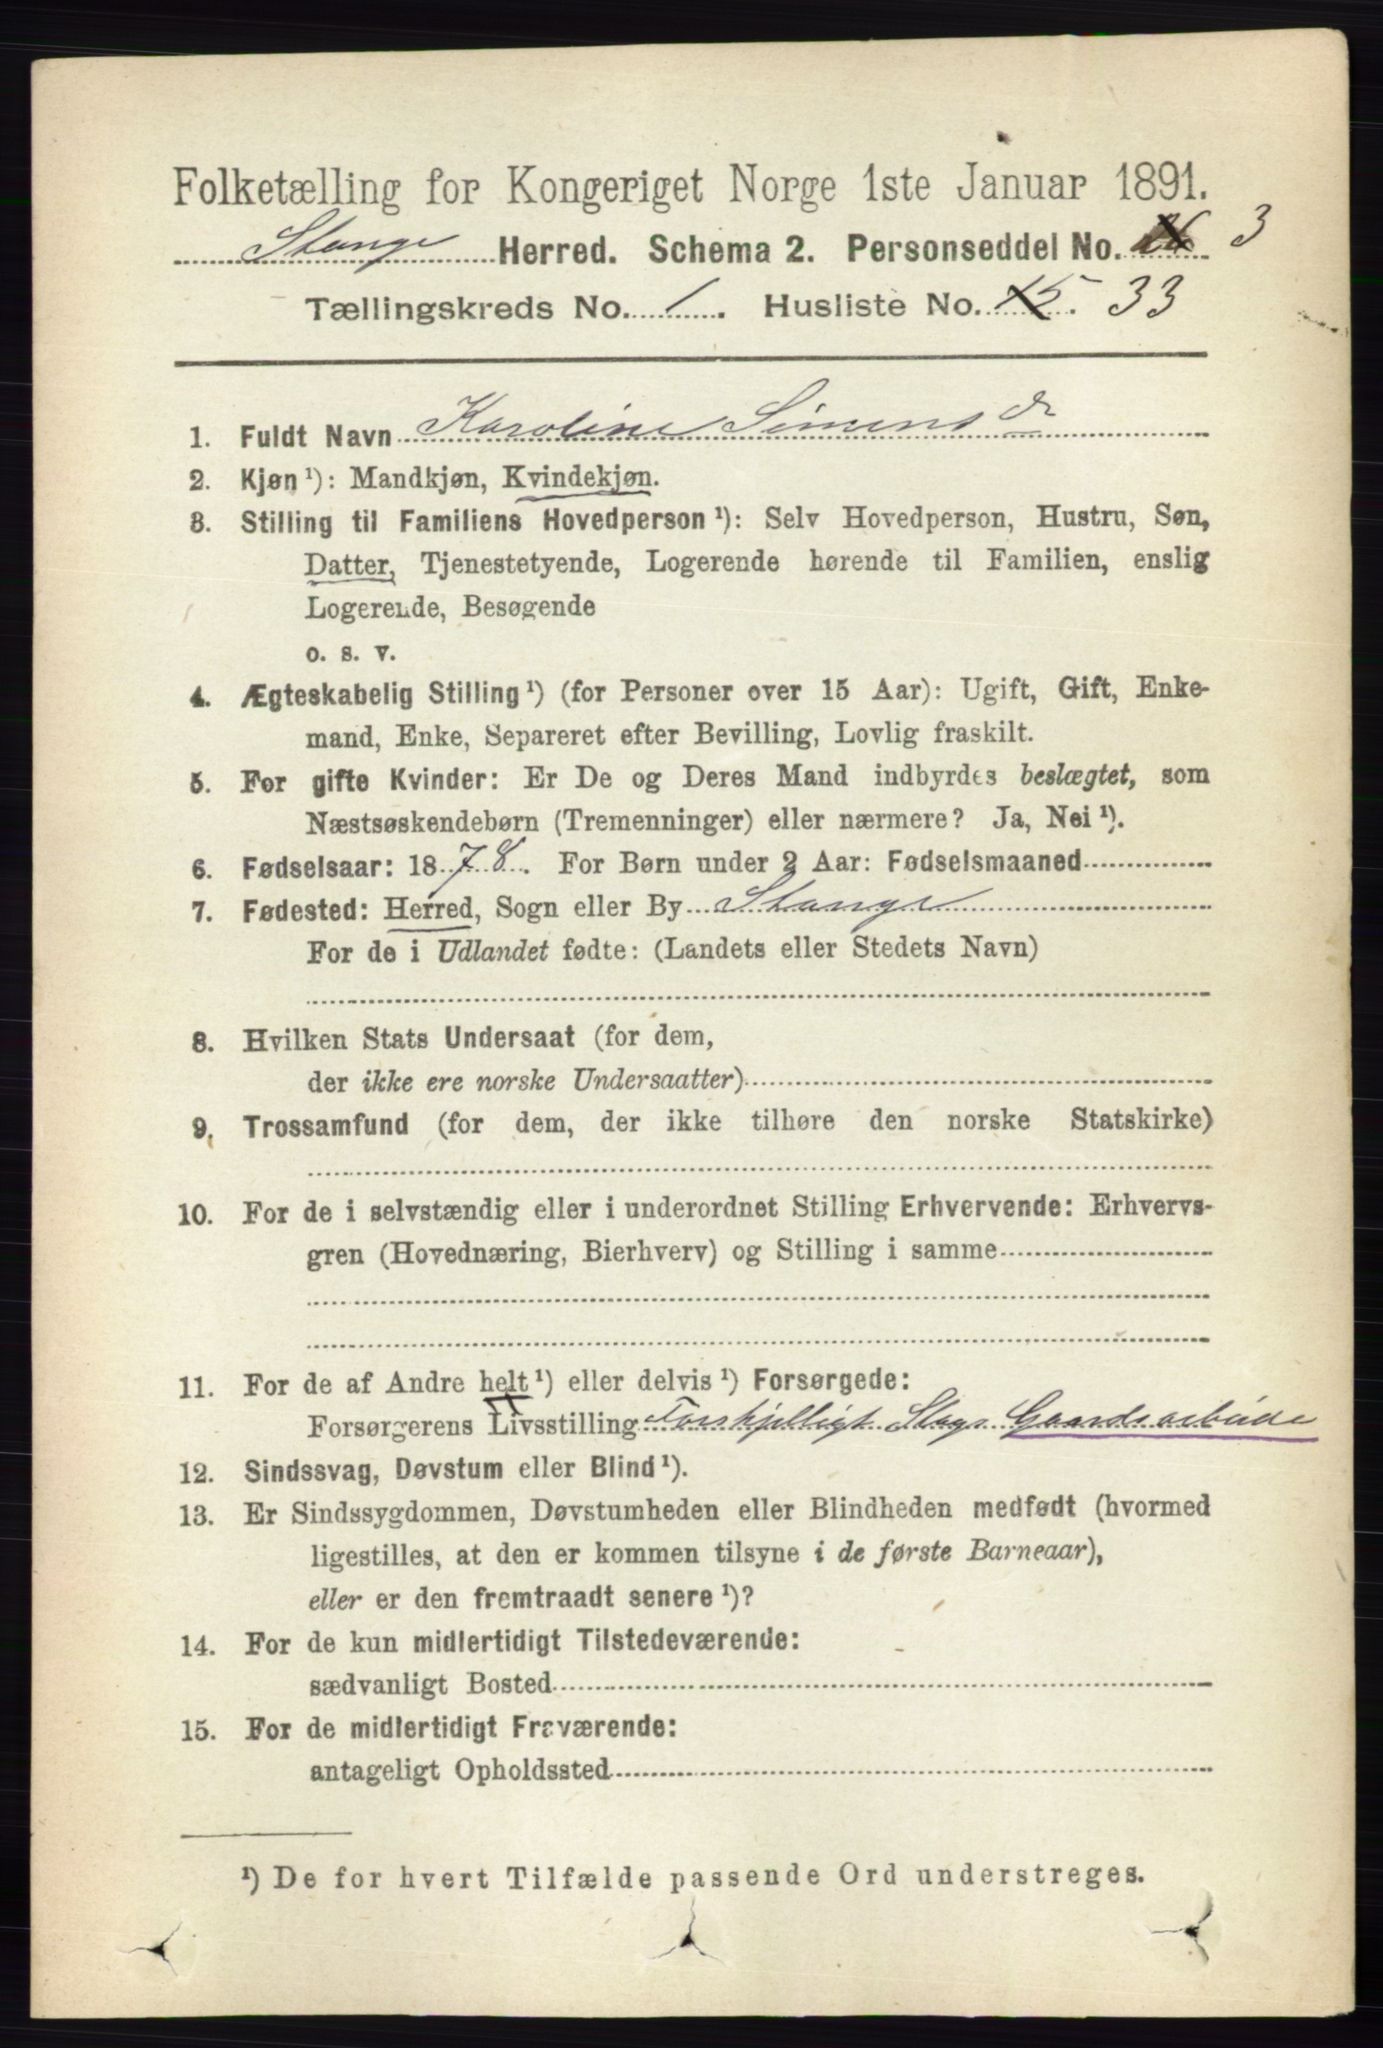 Folketælling for Kongeriget Norge 1ste Januar 1891.
Stange Herred. Schema 2. Personseddel No. 3
Tællingskreds No. 1. Husliste No. 15. 33
1. Fuldt Navn Karoline Simensdr
2. Kjøn ¹): Mandkjøn, Kvindekjøn.
3. Stilling til Familiens Hovedperson ¹): Selv Hovedperson, Hustru, Søn,
Datter, Tjenestetyende, Logerende hørende til Familien, enslig
Logerende, Besøgende
o. s. v.
4. Ægteskabelig Stilling ¹) (for Personer over 15 Aar): Ugift, Gift, Enke-
mand, Enke, Separeret efter Bevilling, Lovlig fraskilt.
5. For gifte Kvinder: Er De og Deres Mand indbyrdes beslægtet, som
Næstsøskendebørn (Tremenninger) eller nærmere? Ja, Nei ¹).
6. Fødselsaar: 1878. For Børn under 2 Aar: Fødselsmaaned
7. Fødested: Herred, Sogn eller By Stange
For de i Udlandet fødte: (Landets eller Stedets Navn)
8. Hvilken Stats Undersaat (for dem,
der ikke ere norske Undersaatter)
9. Trossamfund (for dem, der ikke tilhøre den norske Statskirke)
10. For de i selvstændig eller i underordnet Stilling Erhvervende: Erhvervs-
gren (Hovednæring, Bierhverv) og Stilling i samme
11. For de af Andre helt ¹) eller delvis ¹) Forsørgede:
Forsørgerens Livsstilling Forskjelligt Slags Gaardsarbeide
12. Sindssvag, Døvstum eller Blind ¹).
13. Er Sindssygdommen, Døvstumheden eller Blindheden medfødt (hvormed
ligestilles, at den er kommen tilsyne i de første Barneaar),
eller er den fremtraadt senere ¹)?
14. For de kun midlertidigt Tilstedeværende:
sædvanligt Bosted
15. For de midlertidigt Fraværende:
antageligt Opholdssted
¹) De for hvert Tilfælde passende Ord understreges.